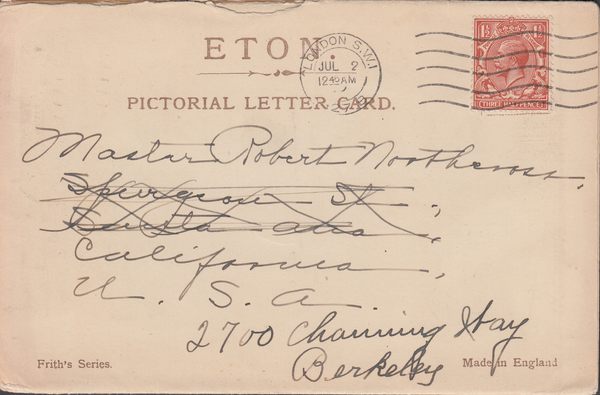 ETON
PICTORIAL LETTER CARD.
LONDON S.W.1
JUL 2
12 45 AM
1½ 1½
THREE HALFPENCE
Master Robert Northcross,
Spurgeon St.,
Santa Ana,
California,
U. S. A
2700 Channing Way
Berkeley
Frith's Series.
Made in England